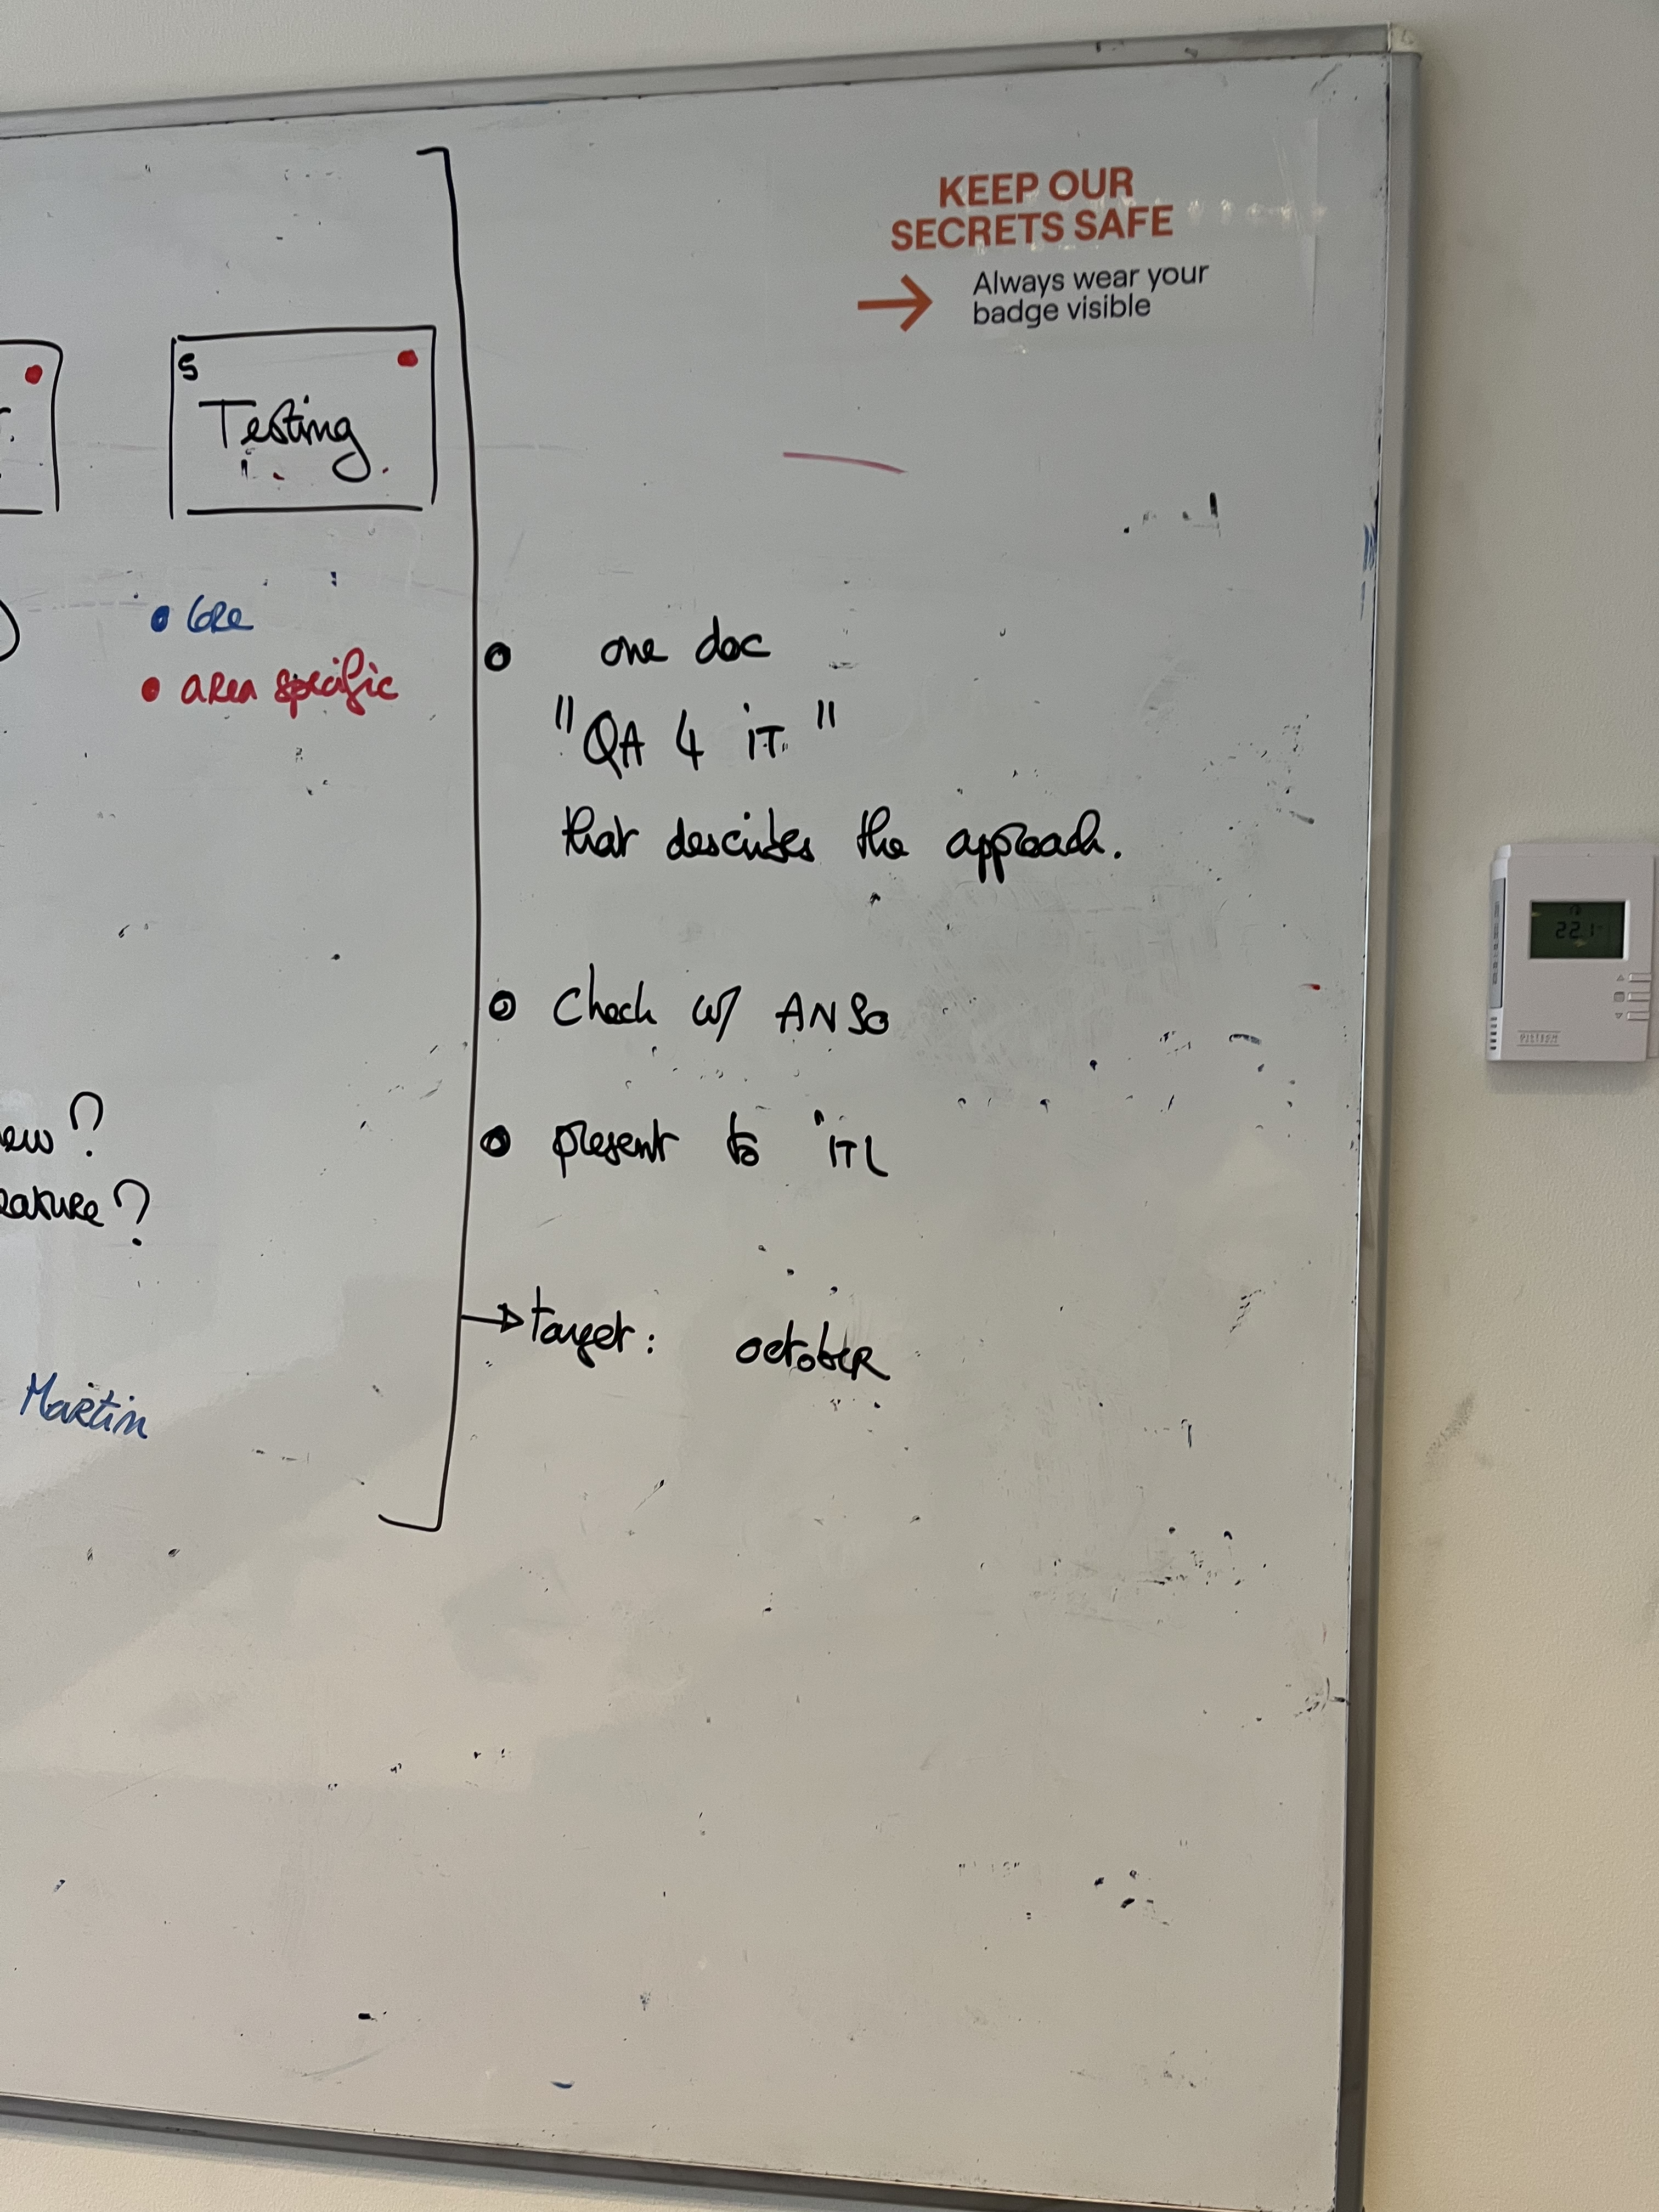 KEEP OUR
SECRETS SAFE
→ Always wear your
badge visible
5
Testing
• Core
• area specific
• one doc
"QA 4 iT"
that describes the approach.
• Check w/ ANSO
• present to iTL
→ target: october
ew?
eature?
Martin
22.1